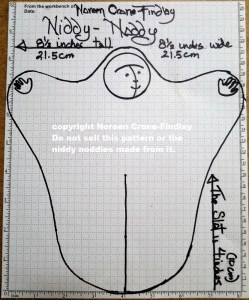 From the workbench of
Noreen Crone-Findlay
Date:
Niddy-Noddy
8½ inches tall
21.5cm
8½ inches wide
21.5cm
copyright Noreen Crone-Findlay
Do not sell this pattern or the
niddy noddies made from it.
The Slot is 4 inches
(10 cm)